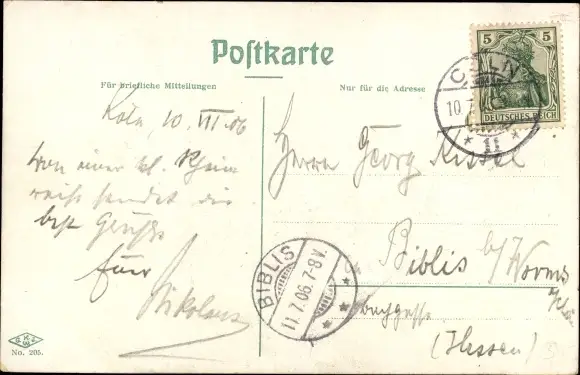 Postkarte
Für briefliche Mitteilungen
Nur für die Adresse
5
DEUTSCHES REICH
CÖLN
10.7.
* 11 *
Köln, 10 VII 06
Von einer kl. Rhein
reise sendet die
best Grüße
Nikolaus
Herrn Georg Kissel
Biblis b/Worms
(Hessen)
BIBLIS
11.7.06.7-8V.
No. 205.